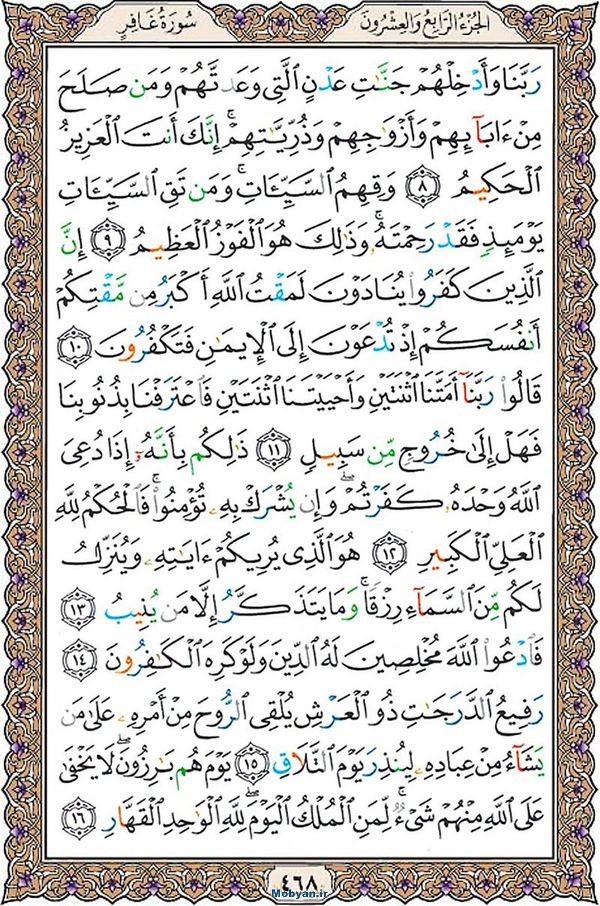 الجزء الرابع والعشرون
سورة غافر
رَبَّنَا وَأَدْخِلْهُمْ جَنَّـٰتِ عَدْنٍ ٱلَّتِى وَعَدتَّهُمْ وَمَن صَلَحَ
مِنْ ءَابَآئِهِمْ وَأَزْوَٰجِهِمْ وَذُرِّيَّـٰتِهِمْ ۚ إِنَّكَ أَنتَ ٱلْعَزِيزُ
ٱلْحَكِيمُ ٨ وَقِهِمُ ٱلسَّيِّـَٔاتِ ۚ وَمَن تَقِ ٱلسَّيِّـَٔاتِ
يَوْمَئِذٍ فَقَدْ رَحِمْتَهُۥ ۚ وَذَٰلِكَ هُوَ ٱلْفَوْزُ ٱلْعَظِيمُ ٩ إِنَّ
ٱلَّذِينَ كَفَرُوا۟ يُنَادَوْنَ لَمَقْتُ ٱللَّهِ أَكْبَرُ مِن مَّقْتِكُمْ
أَنفُسَكُمْ إِذْ تُدْعَوْنَ إِلَى ٱلْإِيمَـٰنِ فَتَكْفُرُونَ ١٠
قَالُوا۟ رَبَّنَآ أَمَتَّنَا ٱثْنَتَيْنِ وَأَحْيَيْتَنَا ٱثْنَتَيْنِ فَٱعْتَرَفْنَا بِذُنُوبِنَا
فَهَلْ إِلَىٰ خُرُوجٍ مِّن سَبِيلٍ ١١ ذَٰلِكُم بِأَنَّهُۥٓ إِذَا دُعِىَ
ٱللَّهُ وَحْدَهُۥ كَفَرْتُمْ ۖ وَإِن يُشْرَكْ بِهِۦ تُؤْمِنُوا۟ ۚ فَٱلْحُكْمُ لِلَّهِ
ٱلْعَلِىِّ ٱلْكَبِيرِ ١٢ هُوَ ٱلَّذِى يُرِيكُمْ ءَايَـٰتِهِۦ وَيُنَزِّلُ
لَكُم مِّنَ ٱلسَّمَآءِ رِزْقًا ۚ وَمَا يَتَذَكَّرُ إِلَّا مَن يُنِيبُ ١٣
فَٱدْعُوا۟ ٱللَّهَ مُخْلِصِينَ لَهُ ٱلدِّينَ وَلَوْ كَرِهَ ٱلْكَـٰفِرُونَ ١٤
رَفِيعُ ٱلدَّرَجَـٰتِ ذُو ٱلْعَرْشِ يُلْقِى ٱلرُّوحَ مِنْ أَمْرِهِۦ عَلَىٰ مَن
يَشَآءُ مِنْ عِبَادِهِۦ لِيُنذِرَ يَوْمَ ٱلتَّلَاقِ ١٥ يَوْمَ هُم بَـٰرِزُونَ ۖ لَا يَخْفَىٰ
عَلَى ٱللَّهِ مِنْهُمْ شَىْءٌ ۚ لِّمَنِ ٱلْمُلْكُ ٱلْيَوْمَ ۖ لِلَّهِ ٱلْوَٰحِدِ ٱلْقَهَّارِ ١٦
٤٦٨
Mobyan.ir